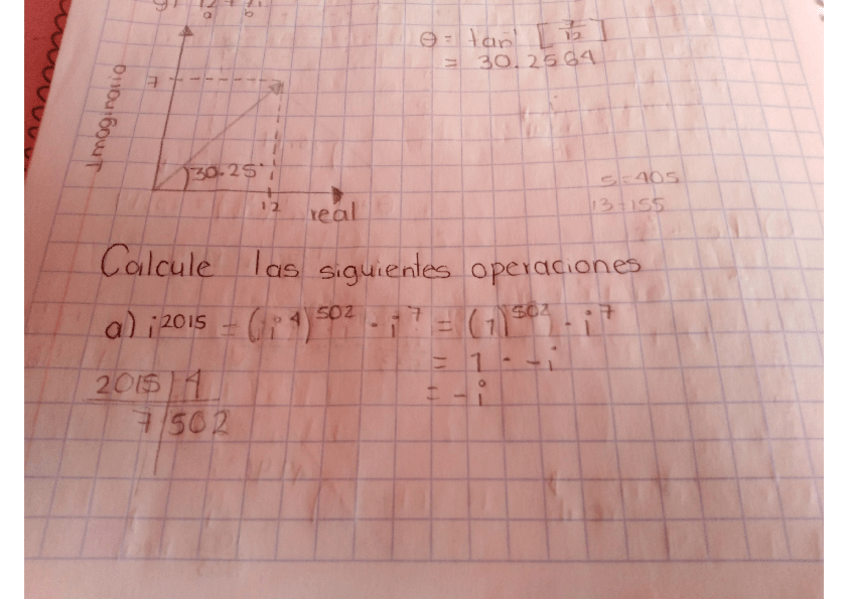 θ = tan⁻¹ [7/12]
= 30.2564
Imaginario
7
30.25°
12
real
5=405
13=155
Calcule las siguientes operaciones
a) i²⁰¹⁵ = (i⁴)⁵⁰² · i⁷ = (1)⁵⁰² · i⁷
= 1 · -i
= -i
2015 | 4
7 | 502